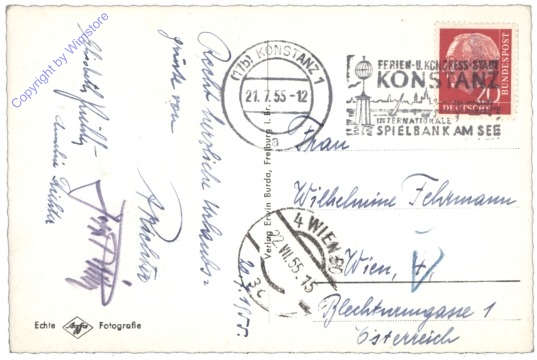 Copyright by Wigstore
Recht herzliche Urlaubs-
grüße von
A. Richter
20.7.1955.
Echte Agfa Fotografie
Verlag Erwin Burda, Freiburg i. Br.
(17b) KONSTANZ 1
21.7.55-12
a
FERIEN-U.KONGRESS-STADT
KONSTANZ
INTERNATIONALE
SPIELBANK AM SEE
20
DEUTSCHE
BUNDESPOST
4 WIEN 50
22.VII.55.15
3c
Frau
Wilhelmine Fehrmann
Wien, 4
Blechturmgasse 1
Österreich